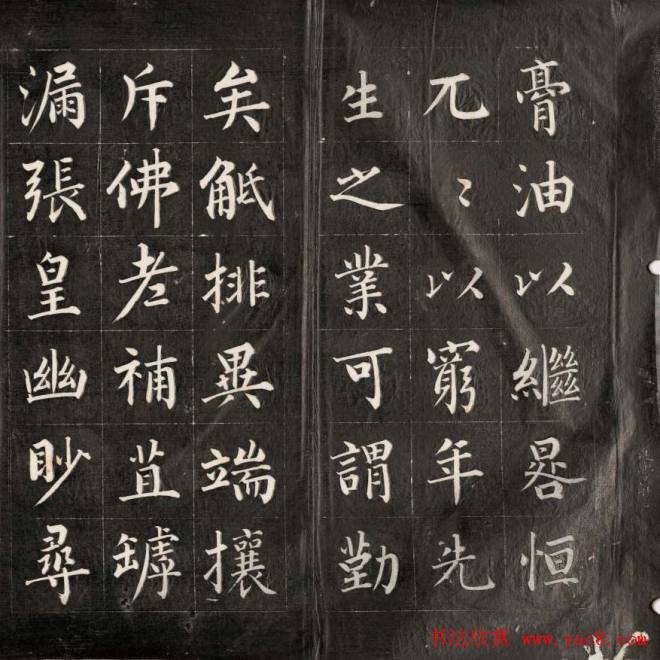 膏油以繼晷恒
兀〻以窮年先
生之業可謂勤
矣觝排異端攘
斥佛老補苴罅
漏張皇幽眇尋
书法欣赏 www.yac8.com